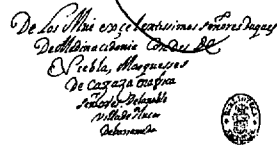 De Los Mui exçelentissimos señores duques
De Medinacidonia Condes De
Niebla, Marqueses
De Caçaza en africa
señores. De la noble
Villa de Huel